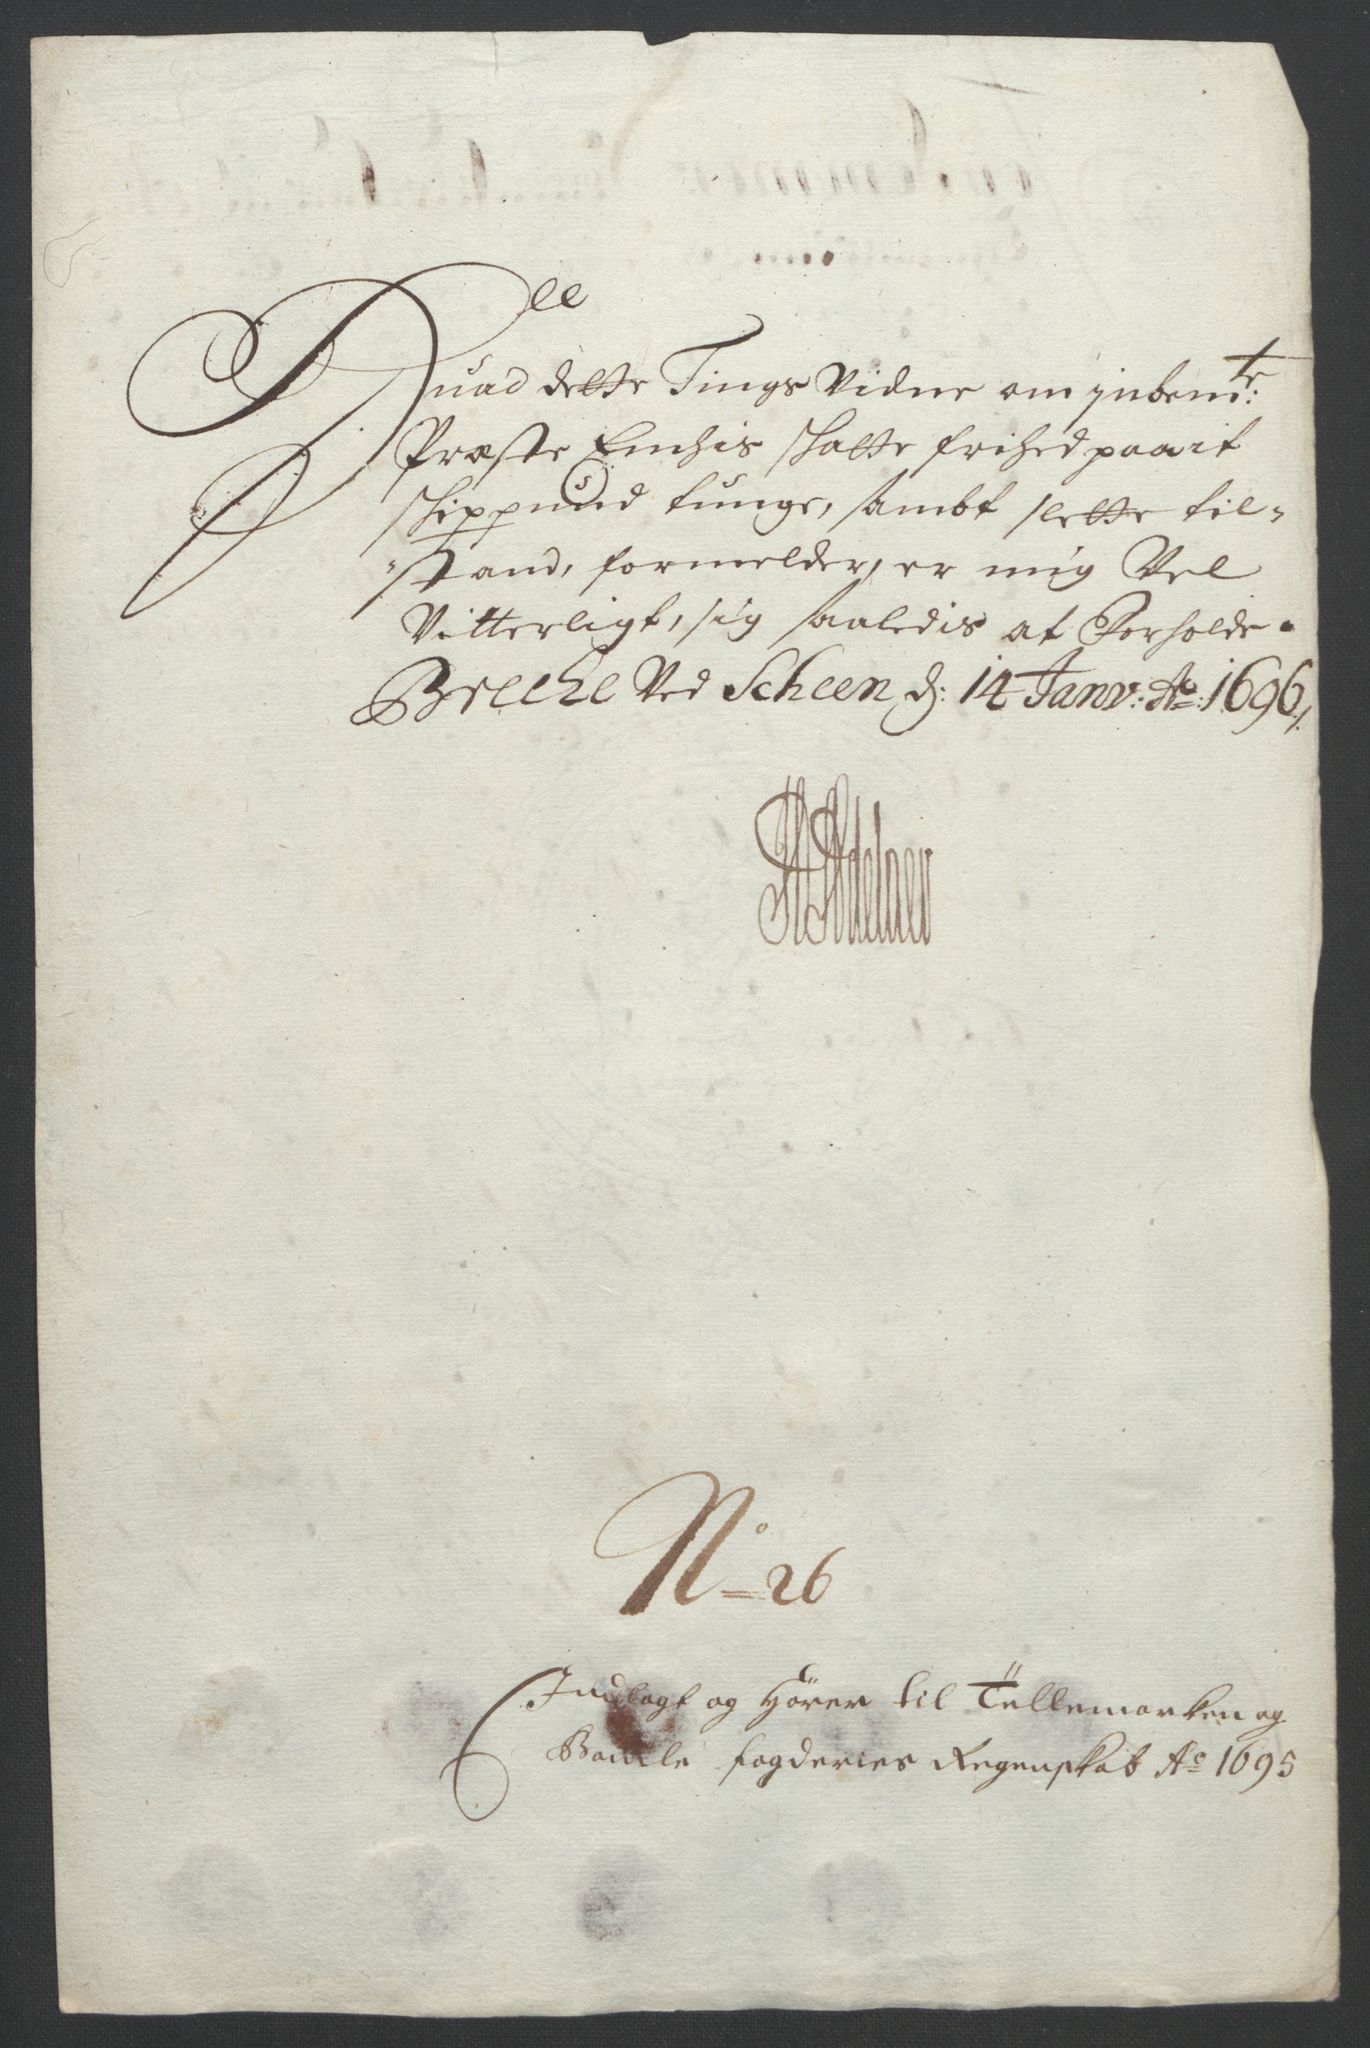 Huad dette Tings Vidne om inbemte:
Præste Enchis skatte frihed paa it
skippund tunge, sambt slette til-
stand, formelder, er mig Vel
Vitterligt, sig saaledis at Forholde.
Breche Ved Scheen d: 14 Janv: Ao: 1696/.
Adelaer
No = 26
Indlagt og Hörer til Tellemarken og
Bamle fogderies Regenskab Ao 1695